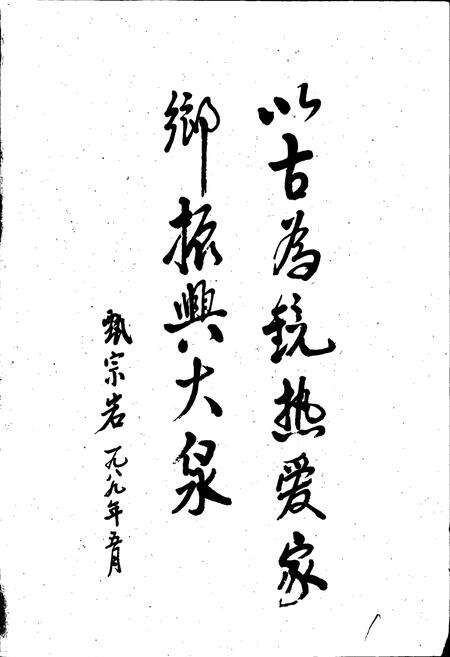 以古為鏡热爱家
鄉振興大泉
甄宗岩 一九八九年五月